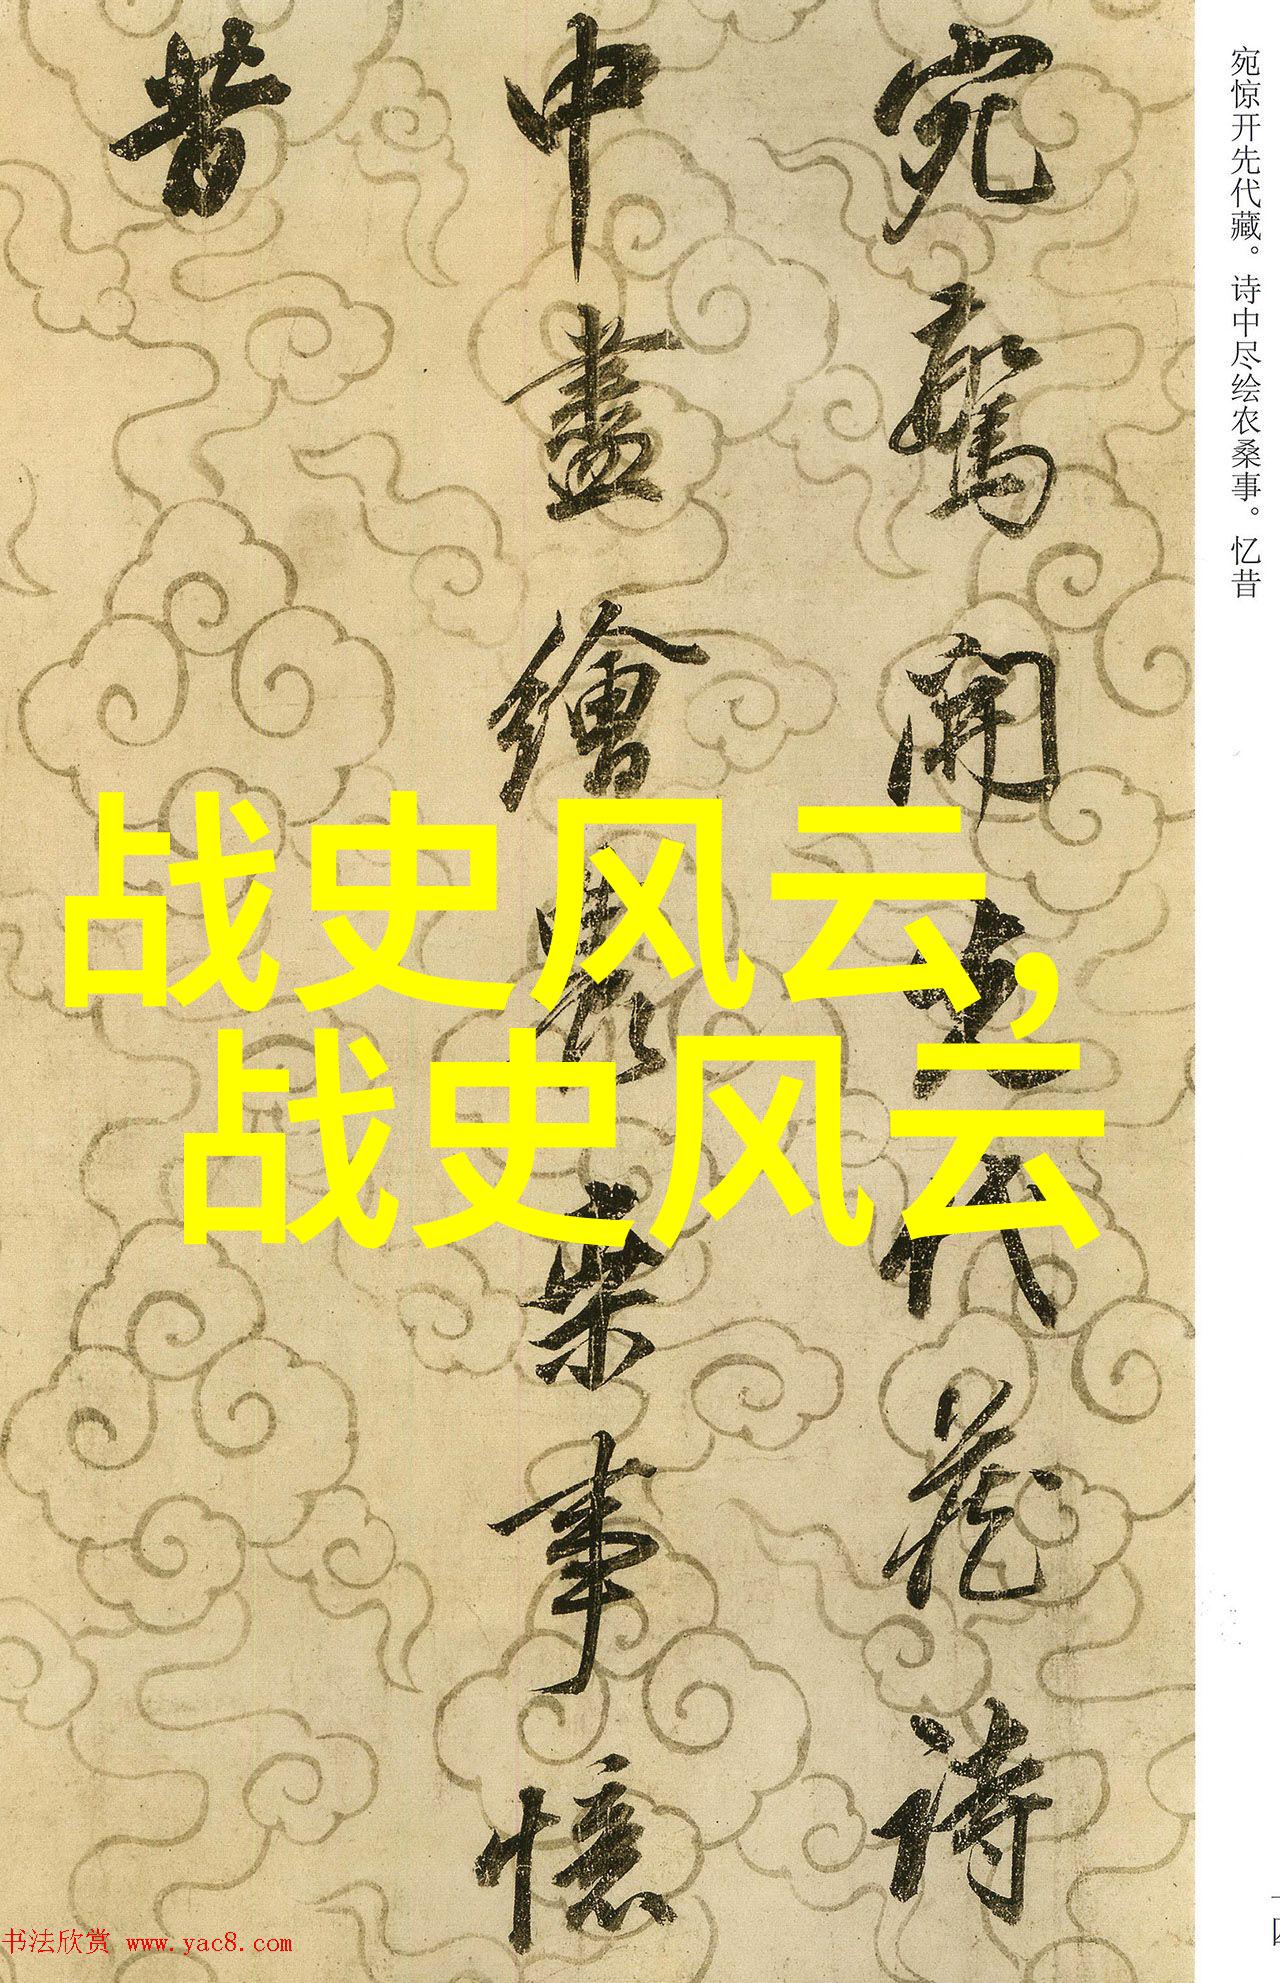 宛驚開先代藏詩
中盡繪農桒事憶
昔
宛惊开先代藏。诗中尽绘农桑事。忆昔
战史风云，
战史风云
书法欣赏 www.yac8.com